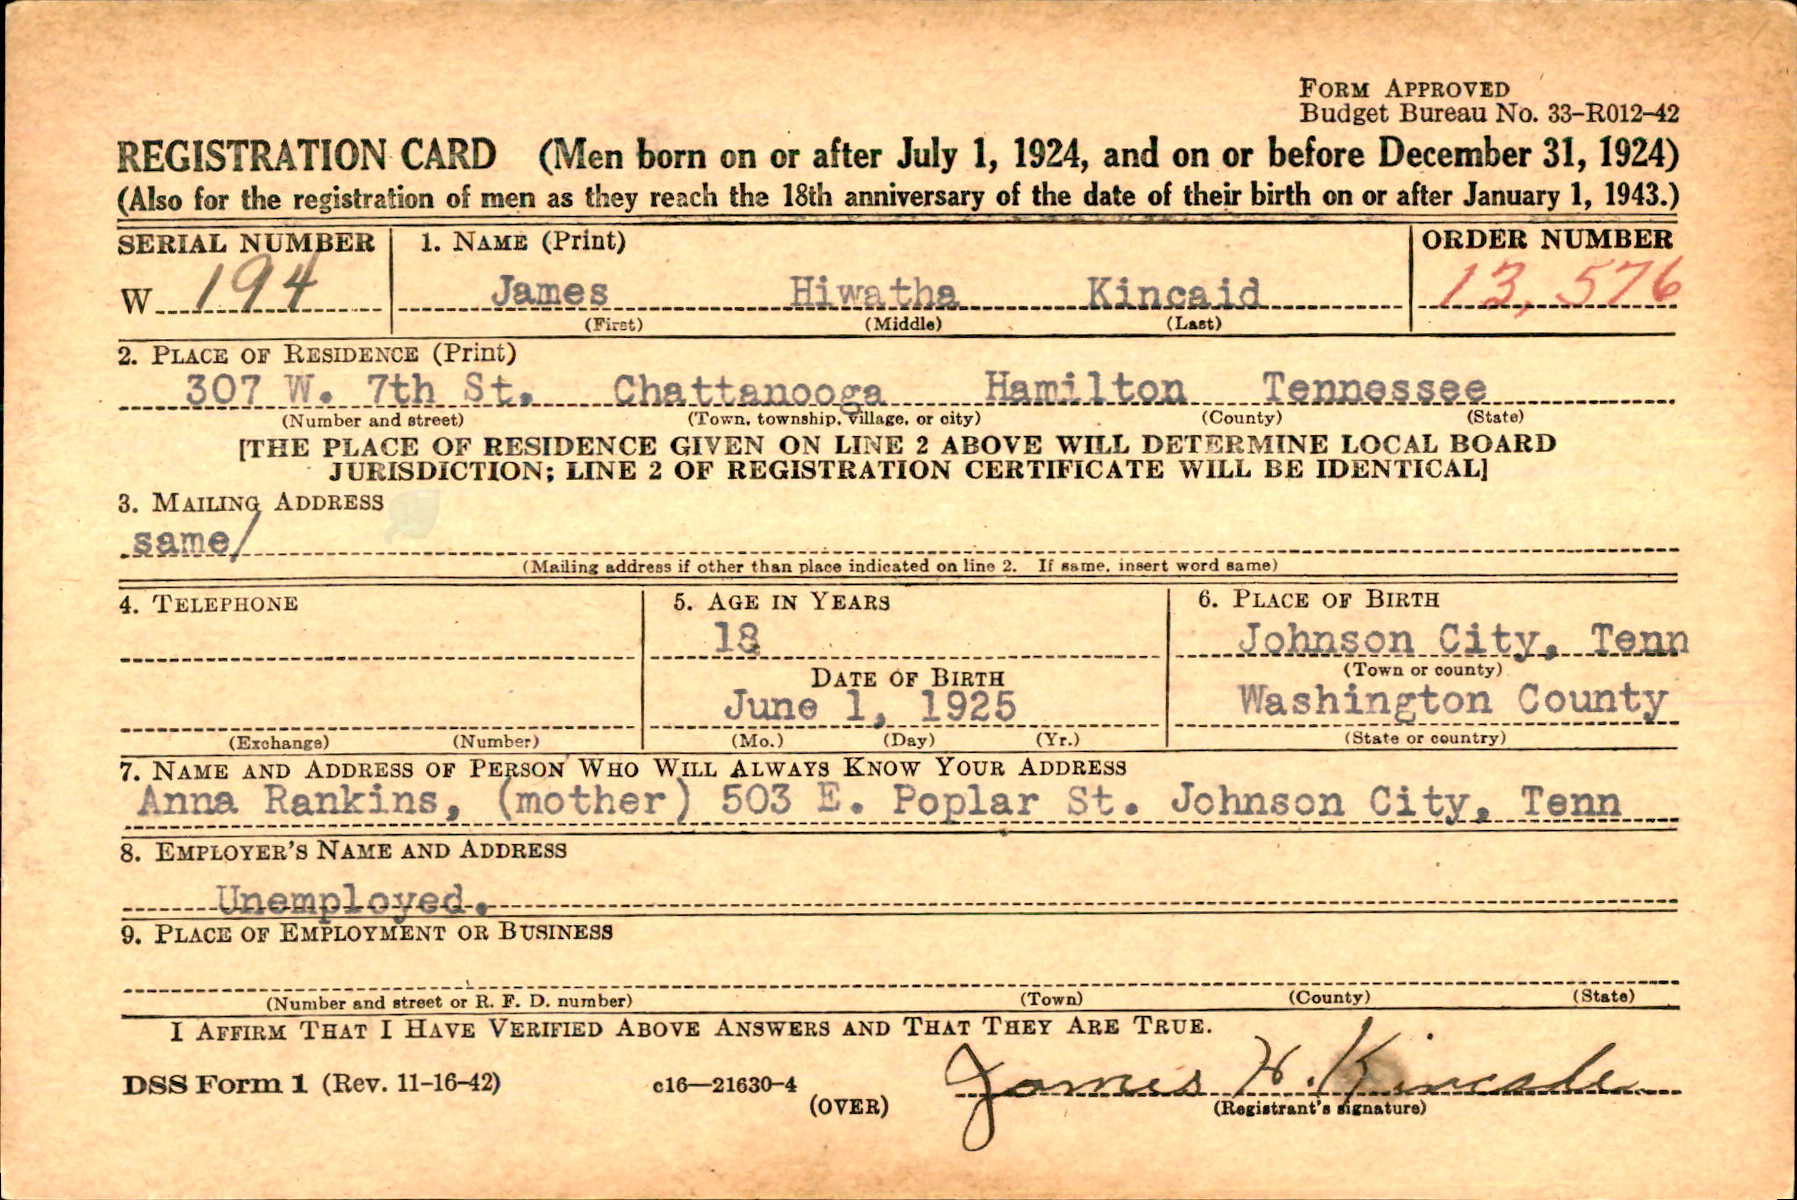 FORM APPROVED
Budget Bureau No. 33-R012-42
REGISTRATION CARD (Men born on or after July 1, 1924, and on or before December 31, 1924)
(Also for the registration of men as they reach the 18th anniversary of the date of their birth on or after January 1, 1943.)
SERIAL NUMBER 1. NAME (Print) ORDER NUMBER
W 194 James Hiwatha Kincaid 13,576
(First) (Middle) (Last)
2. PLACE OF RESIDENCE (Print)
307 W. 7th St. Chattanooga Hamilton Tennessee
(Number and street) (Town, township, village, or city) (County) (State)
[THE PLACE OF RESIDENCE GIVEN ON LINE 2 ABOVE WILL DETERMINE LOCAL BOARD
JURISDICTION; LINE 2 OF REGISTRATION CERTIFICATE WILL BE IDENTICAL]
3. MAILING ADDRESS
same/
(Mailing address if other than place indicated on line 2. If same, insert word same)
4. TELEPHONE 5. AGE IN YEARS 6. PLACE OF BIRTH
18 Johnson City, Tenn
(Town or county)
DATE OF BIRTH
June 1, 1925 Washington County
(Exchange) (Number) (Mo.) (Day) (Yr.) (State or country)
7. NAME AND ADDRESS OF PERSON WHO WILL ALWAYS KNOW YOUR ADDRESS
Anna Rankins, (mother) 503 E. Poplar St. Johnson City, Tenn
8. EMPLOYER'S NAME AND ADDRESS
Unemployed.
9. PLACE OF EMPLOYMENT OR BUSINESS
(Number and street or R. F. D. number) (Town) (County) (State)
I AFFIRM THAT I HAVE VERIFIED ABOVE ANSWERS AND THAT THEY ARE TRUE.
DSS Form 1 (Rev. 11-16-42) c16—21630-4 James H. Kincade
(OVER) (Registrant's signature)